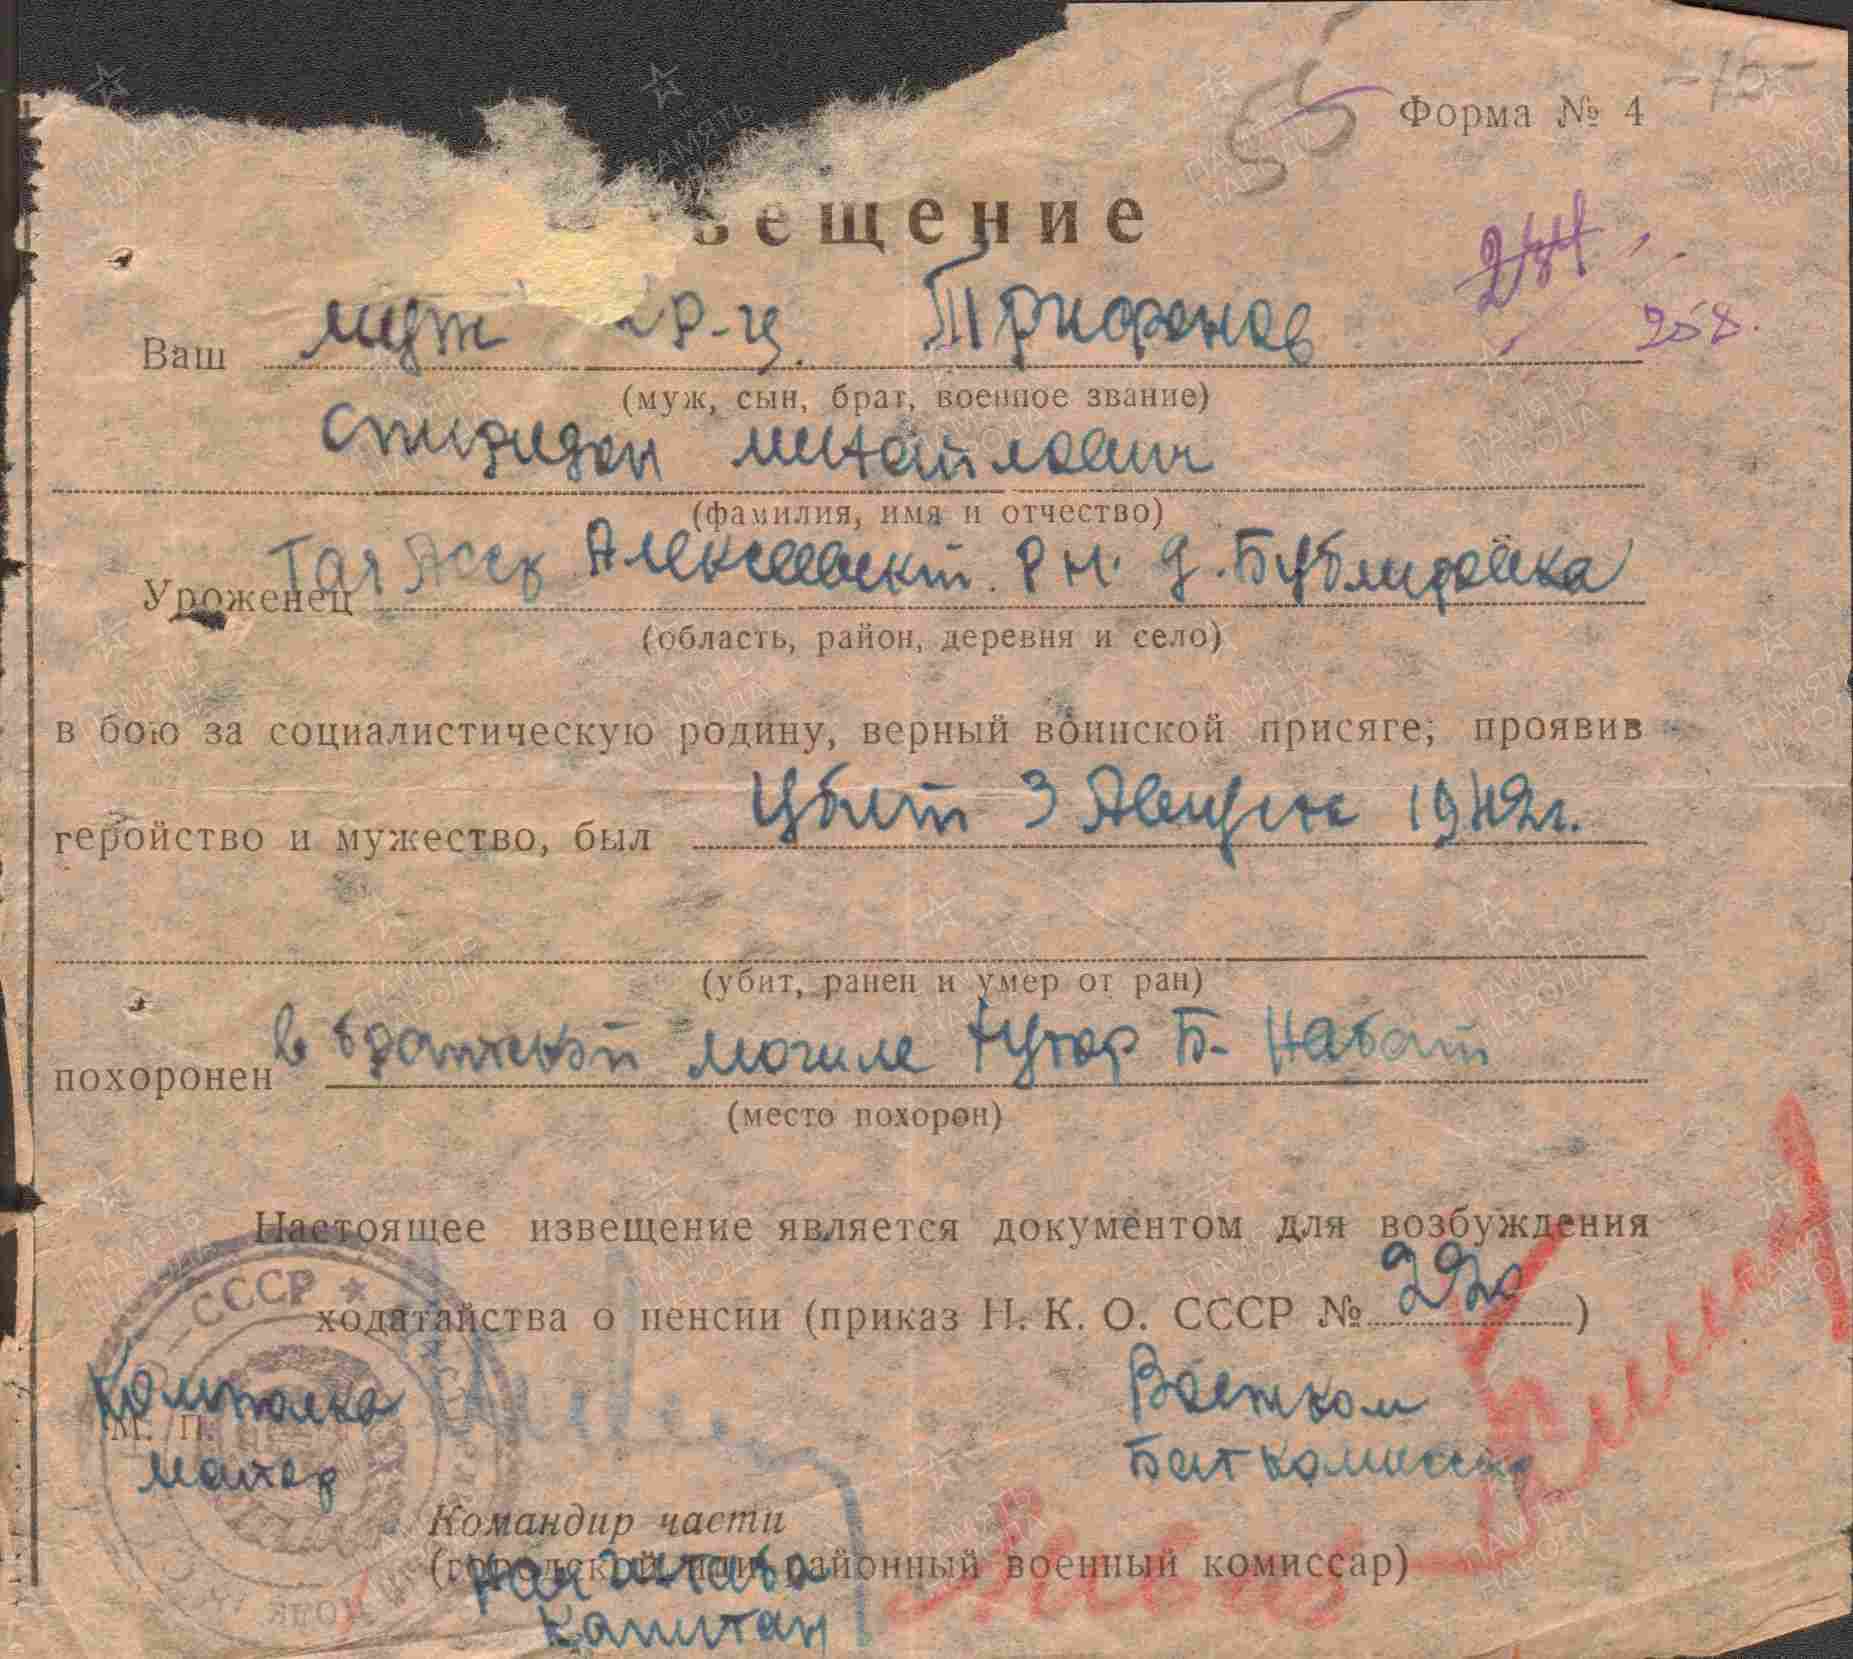 -15-
55
Форма № 4
вещение
244
258.
Ваш муж кр-ц. Трифонов
(муж, сын, брат, военное звание)
Спиридон Михайлович
(фамилия, имя и отчество)
Уроженец ТатАсср Алексеевский р н. д.
(область, район, деревня и село)
в бою за социалистическую родину, верный воинской присяге, проявив
геройство и мужество, был убит 3 Августа 1942г.
(убит, ранен и умер от ран)
похоронен в братской могиле хутор Б. Набат
(место похорон)
Настоящее извещение является документом для возбуждения
ходатайства о пенсии (приказ Н. К. О. СССР № 220)
СССР
Ком полка
М. П.
Майор
Военком
Бат комиссар
Командир части
(городской или районный военный комиссар)
Нач штаба
Капитан
ПАМЯТЬ НАРОДА